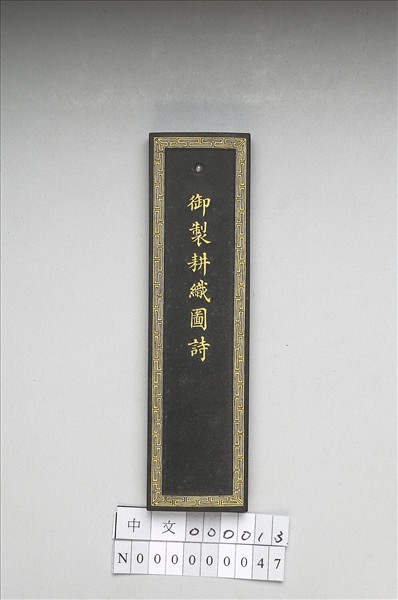 御製耕織圖詩
中文000013
N000000047